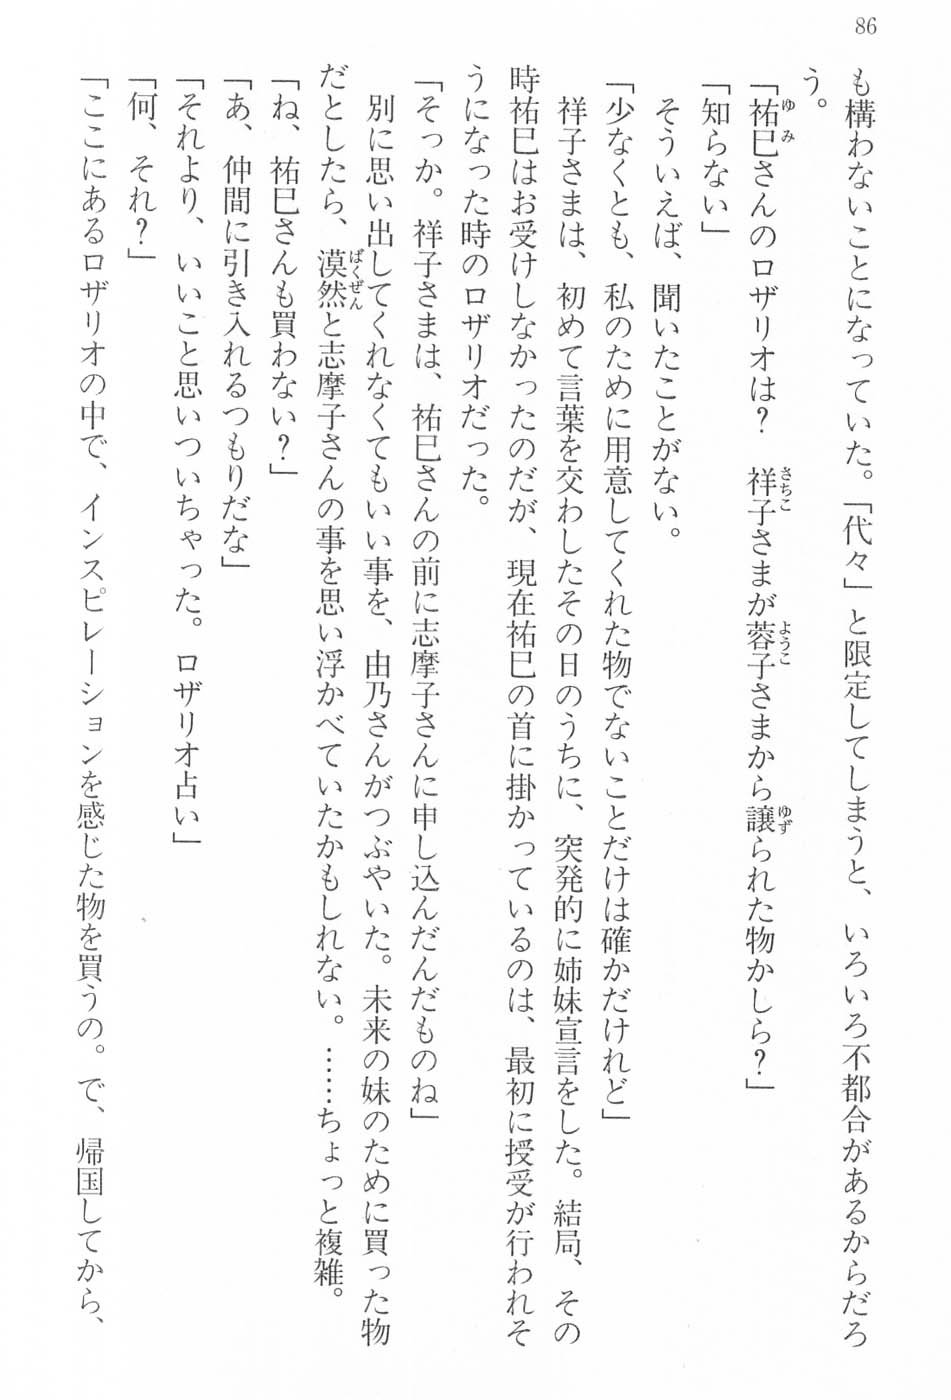 86
も構わないことになっていた。「代々」と限定してしまうと、いろいろ不都合があるからだろ
う。
「祐巳さんのロザリオは？　祥子さまが蓉子さまから譲られた物かしら？」
「知らない」
そういえば、聞いたことがない。
「少なくとも、私のために用意してくれた物でないことだけは確かだけれど」
祥子さまは、初めて言葉を交わしたその日のうちに、突発的に姉妹宣言をした。結局、その
時祐巳はお受けしなかったのだが、現在祐巳の首に掛かっているのは、最初に授受が行われそ
うになった時のロザリオだった。
「そっか。祥子さまは、祐巳さんの前に志摩子さんに申し込んだんだものね」
別に思い出してくれなくてもいい事を、由乃さんがつぶやいた。未来の妹のために買った物
だとしたら、漠然と志摩子さんの事を思い浮かべていたかもしれない。……ちょっと複雑。
「ね、祐巳さんも買わない？」
「あ、仲間に引き入れるつもりだな」
「それより、いいこと思いついちゃった。ロザリオ占い」
「何、それ？」
「ここにあるロザリオの中で、インスピレーションを感じた物を買うの。で、帰国してから、